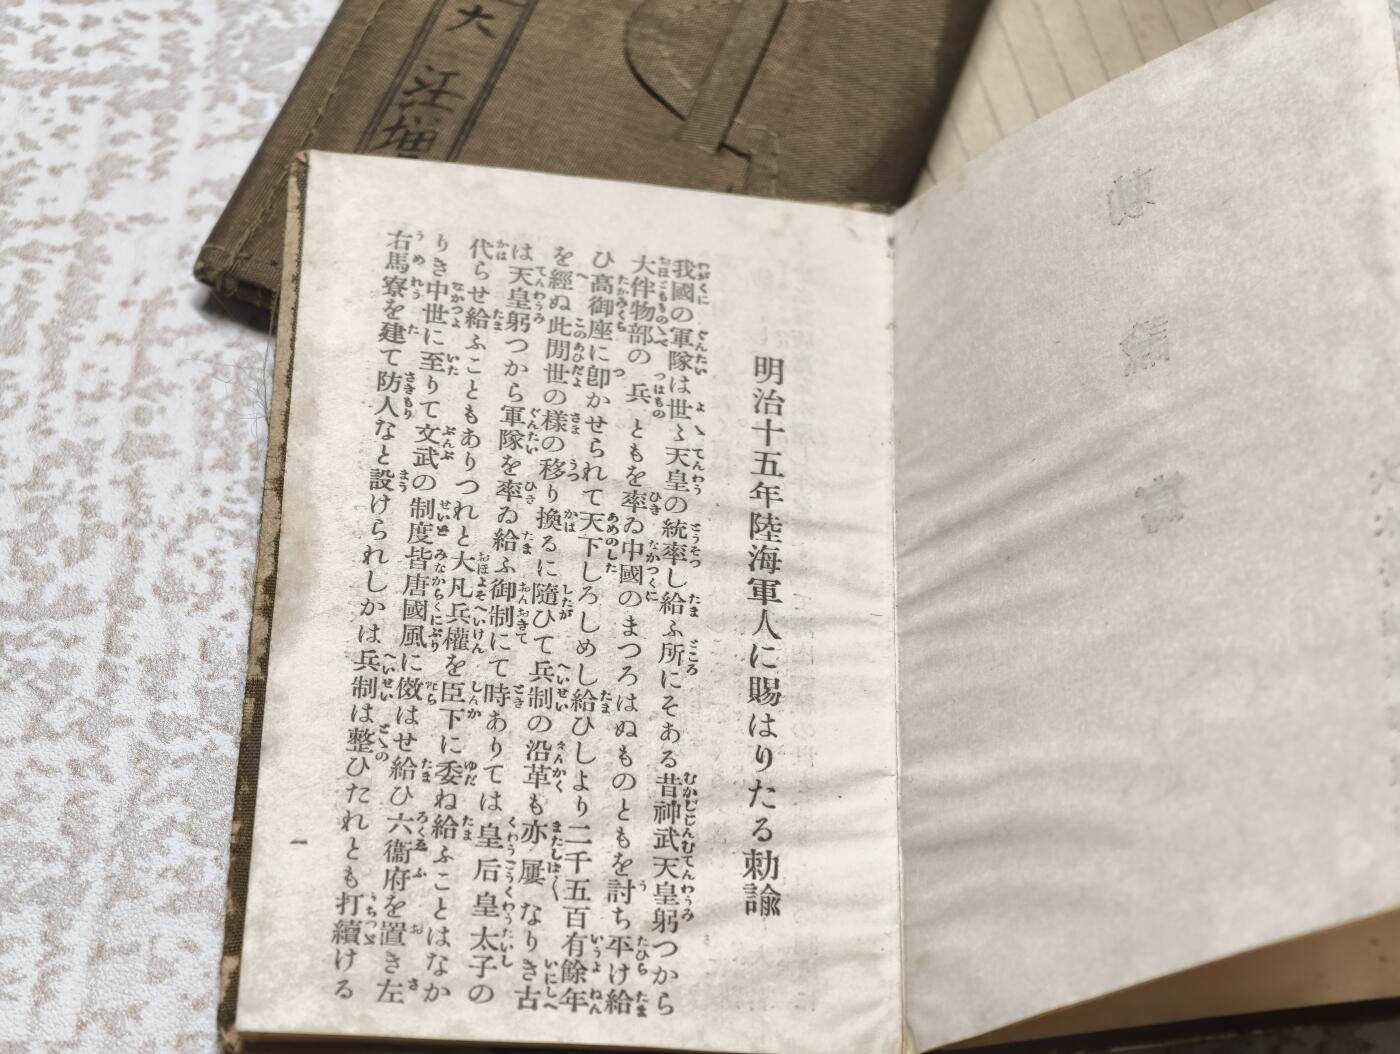 明治十五年陸海軍人に賜はりたる勅諭
我國の軍隊は世〻天皇の統率し給ふ所にそある昔神武天皇躬つから
大伴物部の兵ともを率ゐ中國のまつろはぬものともを討ち平け給
ひ高御座に卽かせられて天下しろしめし給ひしより二千五百有餘年
を經ぬ此閒世の樣の移り換るに隨ひて兵制の沿革も亦屢なりき古
は天皇躬つから軍隊を率ゐ給ふ御制にて時ありては皇后皇太子の
代らせ給ふこともありつれと大凡兵權を臣下に委ね給ふことはなか
りき中世に至りて文武の制度皆唐國風に傚はせ給ひ六衞府を置き左
右馬寮を建て防人なと設けられしかは兵制は整ひたれとも打續ける
一
大 江増